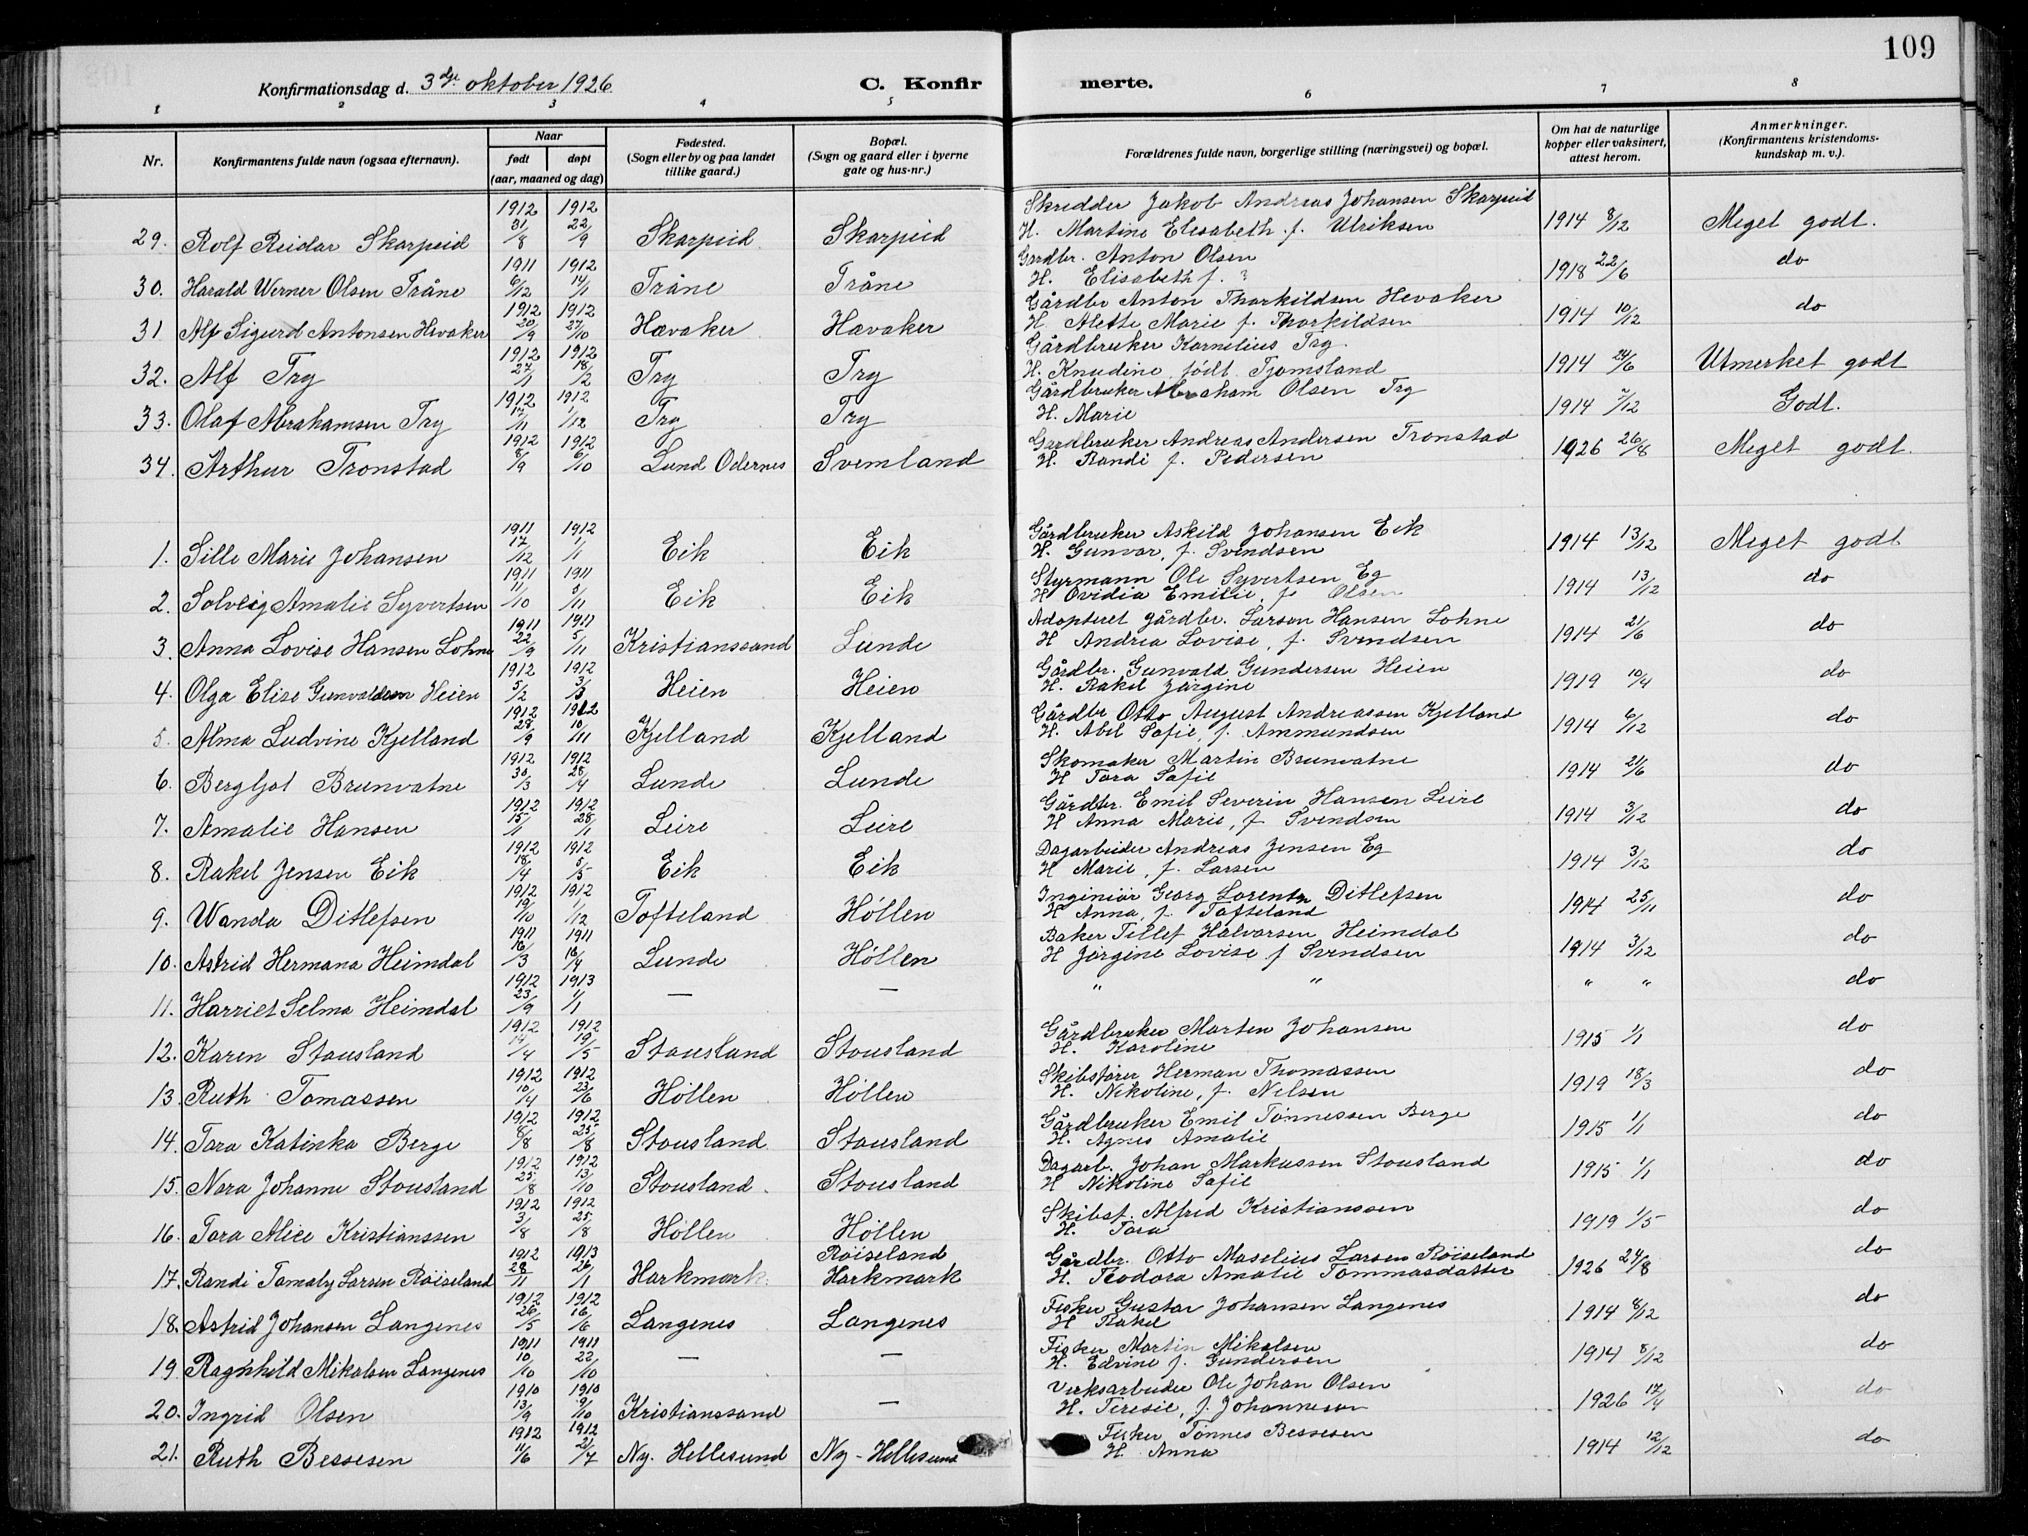 109
Konfirmationsdag d. 3dje oktober 1926 C. Konfirmerte.
1 2 3 4 5 6 7 8
Nr. Konfirmantens fulde navn (ogsaa efternavn). Naar født døpt (aar, maaned og dag) Fødested. (Sogn eller by og paa landet tillike gaard.) Bopæl. (Sogn og gaard eller i byerne gate og hus-nr.) Forældrenes fulde navn, borgerlige stilling (næringsvei) og bopæl. Om hat de naturlige kopper eller vaksinert, attest herom. Anmerkninger. (Konfirmantens kristendomskundskap m. v.).
29. Rolf Reidar Skarpeid 1912 31/8 1912 22/9 Skarpeid Skarpeid Skredder Jakob Andreas Johansen Skarpeid H. Martine Elisabeth f. Ulriksen 1914 8/12 Meget godt.
30. Harald Werner Olsen Tråne 1911 6/12 1912 14/1 Tråne Tråne Gardbr. Anton Olsen H. Elisabeth f. ? 1918 22/6 do
31 Alf Sigurd Antonsen Hevaker 1912 20/9 1912 27/10 Hævaker Hævaker Gårdbr Anton Thorkildsen Hevaker H. Alette Marie f. Thorkildsen 1914 10/12 do
32. Alf Try 1912 27/1 1912 18/2 Try Try Gårdbruker Kornelius Try. H. Knudine født Tjomsland 1914 24/6 Utmerket godt
33. Olaf Abrahamsen Try 1912 17/11 1912 1/12 Try Try Gårdbruker Abraham Olsen Try H. Marie 1914 7/12 Godt.
34. Arthur Tronstad 1912 8/9 1912 6/10 Lund Odernes Svemland Gardbruker Andreas Andersen Tronstad H. Randi f. Pedersen 1926 26/8 Meget godt.
1. Sille Marie Johansen 1911 17/12 1912 1/1 Eik Eik Gårdbruker Askild Johansen Eik H. Gunvor, f. Svendsen 1914 13/12 Meget godt
2. Solveig Amalie Syvertsen 1911 11/10 1911 5/11 Eik Eik Styrmann Ole Syvertsen Eg H Ovidia Emilie, f. Olsen 1914 13/12 do
3. Anna Lovise Hansen Lohne 1911 22/9 1911 5/11 Kristianssand Lunde Adopteret gårdbr. Larson Hansen Lohne H Andrea Lovise, f. Svendsen 1914 21/6 do
4. Olga Elise Gunvaldsen Heien 1912 5/2 1912 3/3 Heien Heien Gårdbr. Gunvald Gundersen Heien H. Rakel Jørgine 1919 10/4 do
5. Alma Ludvine Kjelland 1912 28/9 1912 10/11 Kjelland Kjelland Gårdbr Otto August Andreassen Kjelland H. Abel Sofie, f. Ammundsen 1914 6/12 do
6. Bergljot Brunvatne 1912 30/3 1912 28/4 Lunde Lunde Skomaker Martin Brunvatne H Tora Sofie 1914 21/6 do
7. Amalie Hansen 1912 15/1 1912 28/1 Leire Leire Gårdbr. Emil Severin Hansen Leire H Anna Marie, f. Svendsen 1914 3/12 do
8. Rakel Jensen Eik 1912 18/4 1912 5/5 Eik Eik Dagarbeider Andreas Jensen Eg H Marie, f. Larsen 1914 3/12 do
9. Wanda Ditlefsen 1912 19/10 1912 1/12 Tofteland Høllen Inginiör Georg Lorentz Ditlefsen H Anna, f. Tofteland 1914 25/11 do
10. Astrid Hermana Heimdal 1911 16/3 1911 16/4 Lunde Høllen Baker Tellef Halvorsen Heimdal H Jørgine Lovise f Svendsen 1914 3/12 do
11. Harriet Selma Heimdal 1912 23/9 1913 1/1 — — " " " " do
12. Karen Stousland 1912 17/4 1912 19/5 Stousland Stousland Gårdbruker Morten Johansen H. Karoline 1915 1/1 do
13. Ruth Tomassen 1912 10/4 1912 23/6 Høllen Høllen Skibsfører Herman Thomassen H. Nikoline, f. Nilsen 1919 18/3 do
14. Tora Katinka Berge 1912 8/8 1912 25/8 Stousland Stousland Gårdbruker Emil Tønnessen Berge H. Agnes Amalie 1915 1/1 do
15. Nora Johanne Stousland 1912 25/8 1912 13/10 Stousland. Stousland Dagarb. Johan Markussen Stousland H Nikoline Sofie 1915 1/1 do
16. Tora Alice Kristianssen 1912 3/8 1912 25/8 Høllen Høllen Skibsf. Alfred Kristianssen H. Tora 1919 1/5 do
17. Randi Tomaly Larsen Röiseland 1912 28/11 1913 26/1 Harkmark. Röiseland Harkmark Gårdbr. Otto Maselius Larsen Röiseland H. Teodora Amalie Tommasdatter 1926 24/8 do
18. Astrid Johansen Langenes 1912 26/5 1912 16/6 Langenes Langenes Fisker Gustav Johansen Langenes H Rakel 1914 8/12 do
19 Ragnhild Mikalsen Langenes 1911 10/10 1911 22/10 — — Fisker Martin Mikalsen H. Edvine f. Gundersen 1914 8/12 do
20. Ingrid Olsen 1910 13/9 1910 9/10 Kristianssand — Verksarbeider Ole Johan Olsen H. Teresie, f. Johannesen 1926 17/4 do
21. Ruth Bessesen 1912 11/6 1912 21/7 Ny. Hellesund Ny-Hellesund Fisker Tønnes Bessesen H Anna 1914 12/12 do